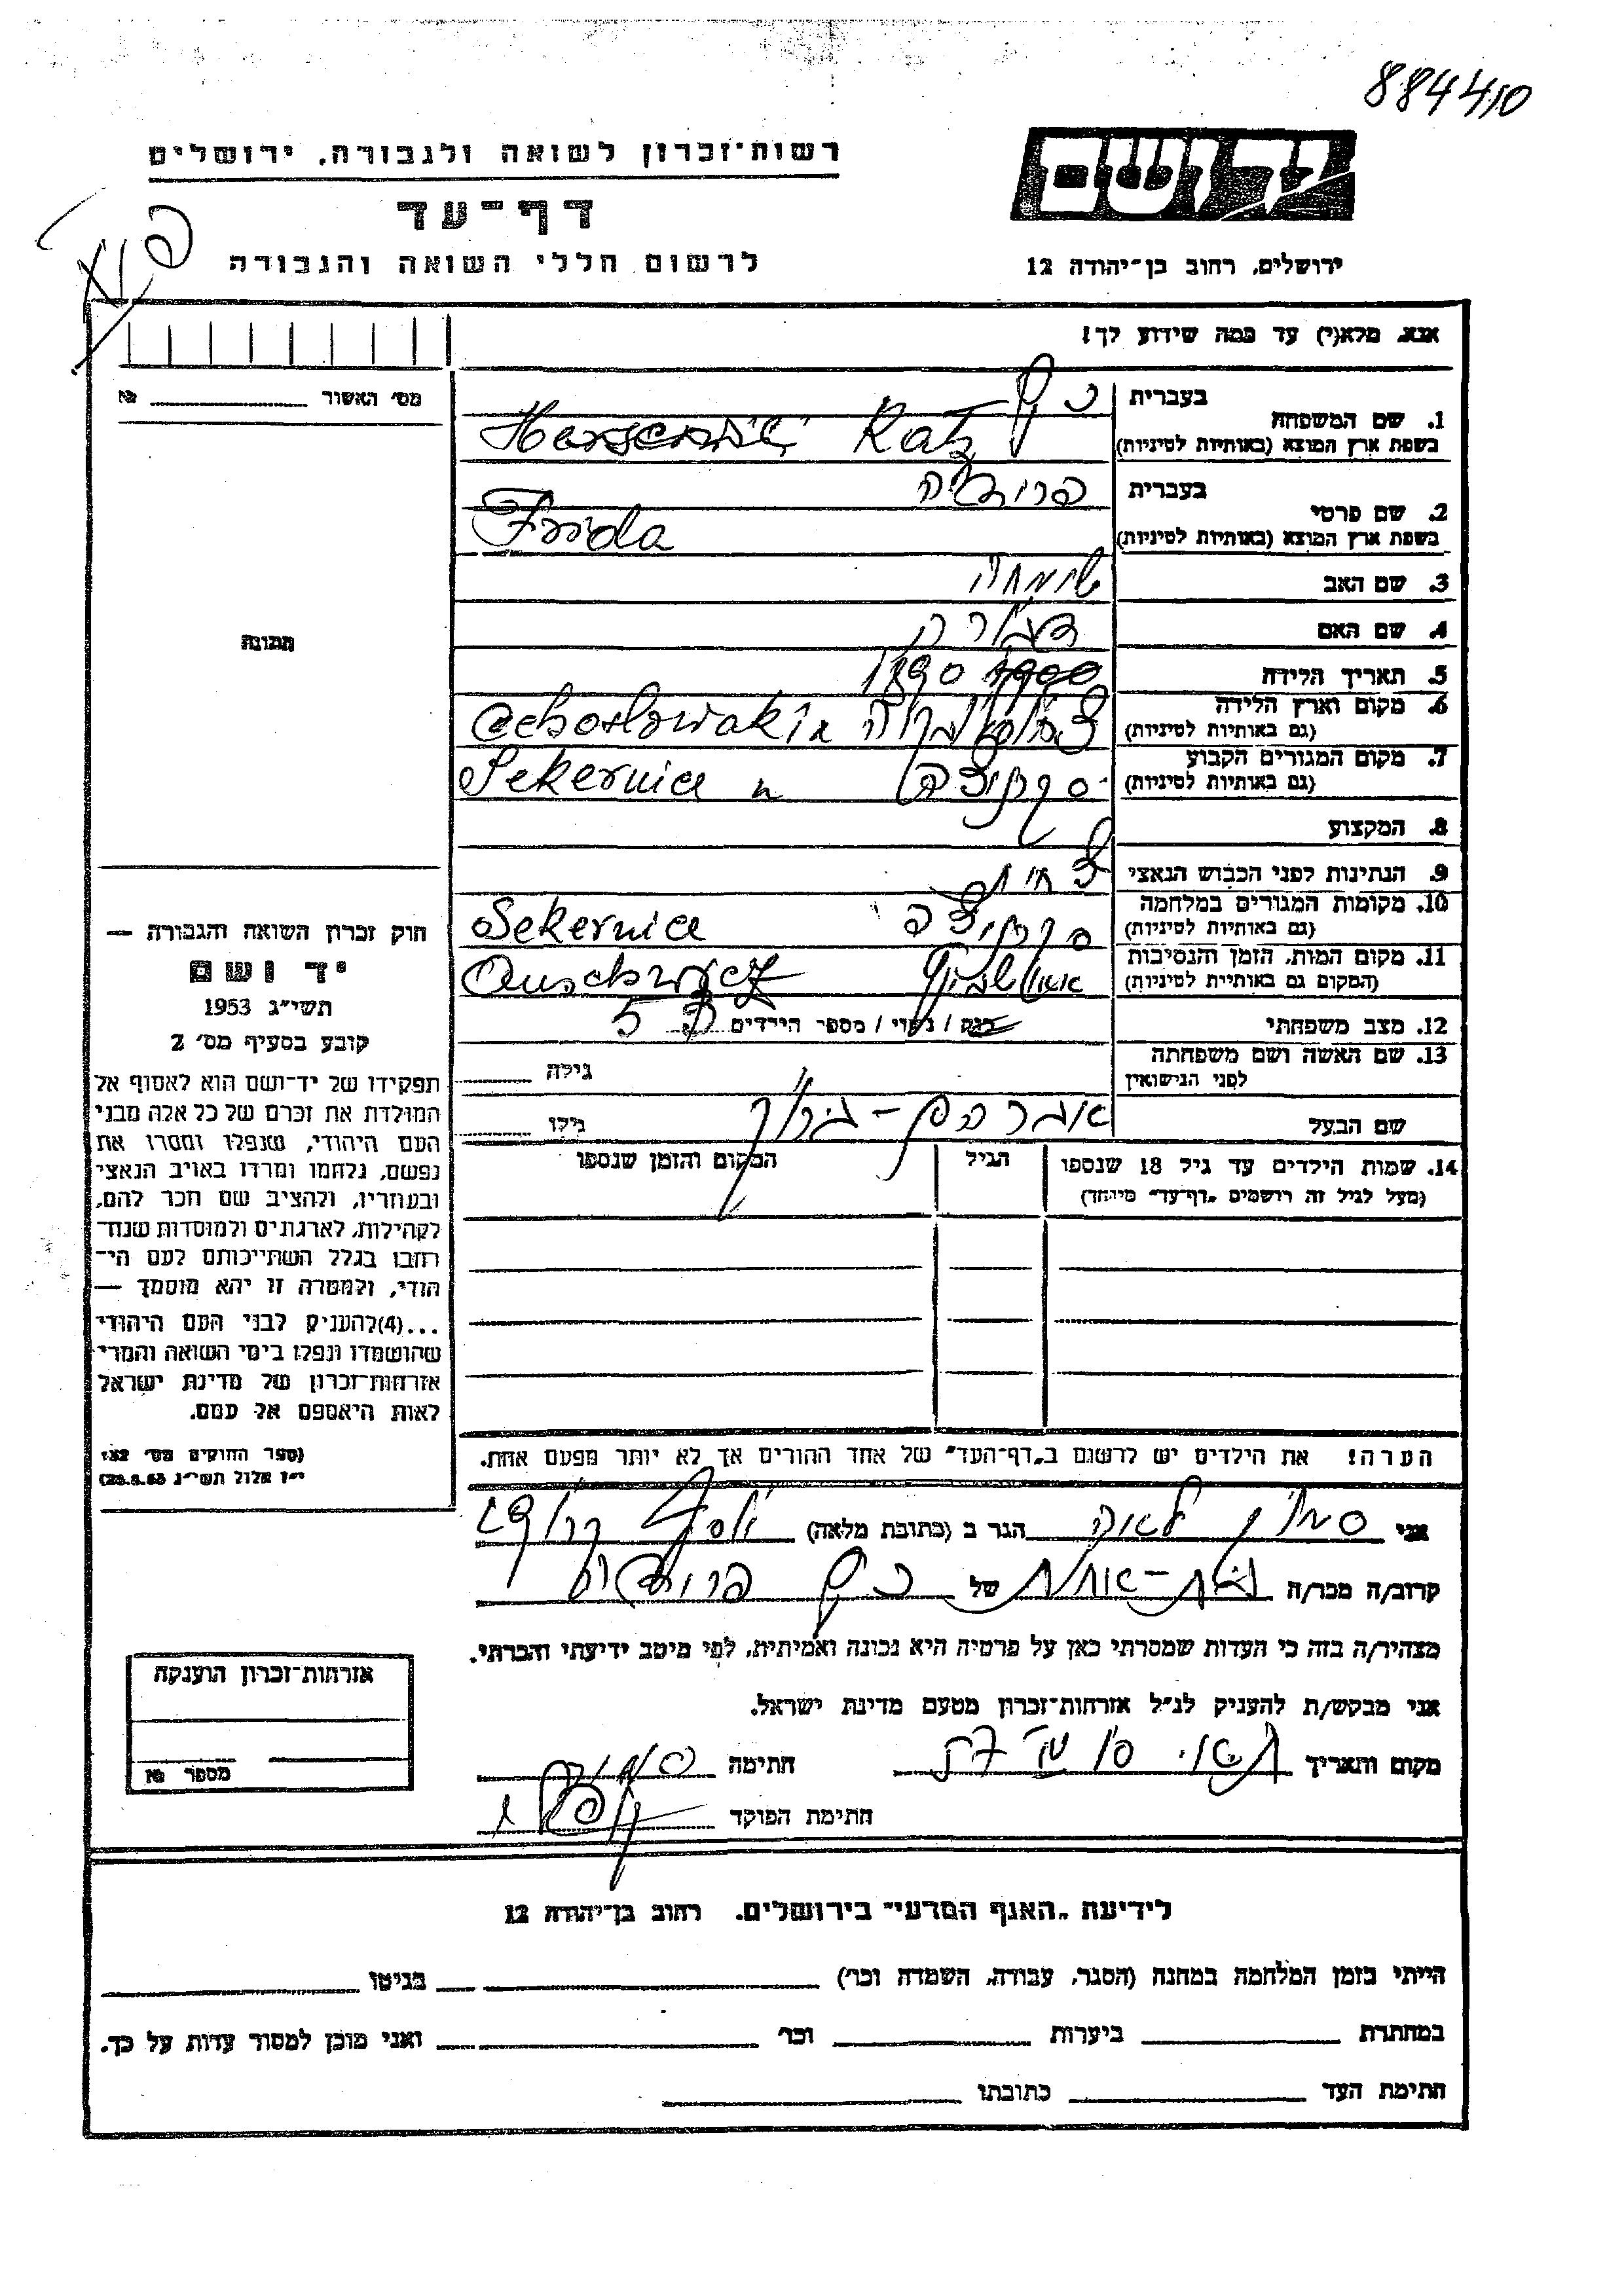 884410
רשות־זכרון לשואה ולגבורה, ירושלים
יד ושם
דף־עד
לרשום חללי השואה והגבורה
ירושלים, רחוב בן־יהודה 12
אנא, מלא(י) עד כמה שידוע לך!
מס' האשור № 
1. שם המשפחה
בעברית כץ
בשפת ארץ המוצא (באותיות לטיניות) Katz
2. שם פרטי
בעברית
בשפת ארץ המוצא (באותיות לטיניות) Frida
3. שם האב שימחה
4. שם האם
5. תאריך הלידה 1900 1890
6. מקום וארץ הלידה
(גם באותיות לטיניות) Cehoslowakia
7. מקום המגורים הקבוע
(גם באותיות לטיניות) Sekernice
8. המקצוע
9. הנתינות לפני הכבוש הנאצי
10. מקומות המגורים במלחמה
(גם באותיות לטיניות) Sekernice
11. מקום המות, הזמן והנסיבות
(המקום גם באותיות לטיניות) Auschwycz
12. מצב משפחתי רווק / נשוי / מספר הילדים 5
13. שם האשה ושם משפחתה
לפני הנישואין גילה
שם הבעל אברהם גילו
14. שמות הילדים עד גיל 18 שנספו
(מעל לגיל זה רושמים „דף־עד" מיוחד)
הגיל
המקום והזמן שנספו
הערה! את הילדים יש לרשום ב„דף־העד" של אחד ההורים אך לא יותר מפעם אחת.
תמונה
חוק זכרון השואה והגבורה —
יד ושם
תשי"ג 1953
קובע בסעיף מס' 2
תפקידו של יד־ושם הוא לאסוף אל
המולדת את זכרם של כל אלה מבני
העם היהודי, שנפלו ומסרו את
נפשם, נלחמו ומרדו באויב הנאצי
ובעוזריו, ולהציב שם וזכר להם,
לקהילות, לארגונים ולמוסדות שנח־
רבו בגלל השתייכותם לעם הי־
הודי, ולמטרה זו יהא מוסמך —
...(4)להעניק לבני העם היהודי
שהושמדו ונפלו בימי השואה והמרי
אזרחות־זכרון של מדינת ישראל
לאות היאספם אל עמם.
(ספר החוקים מס' 132,
י"ז אלול תשי"ג 28.8.53)
אני לאה הגר ב (כתובת מלאה)
קרוב/ה מכר/ה בת-אחות של כץ
מצהיר/ה בזה כי העדות שמסרתי כאן על פרטיה היא נכונה ואמיתית, לפי מיטב ידיעתי והכרתי.
אני מבקש/ת להעניק לנ"ל אזרחות־זכרון מטעם מדינת ישראל.
מקום ותאריך חתימה
חתימת הפוקד
אזרחות־זכרון הוענקה
מספר №
לידיעת „האגף המדעי" בירושלים, רחוב בן־יהודה 12
הייתי בזמן המלחמה במחנה (הסגר, עבודה, השמדה וכו') בגיטו
במחתרת ביערות וכו' ואני מוכן למסור עדות על כך.
חתימת העד כתובתו